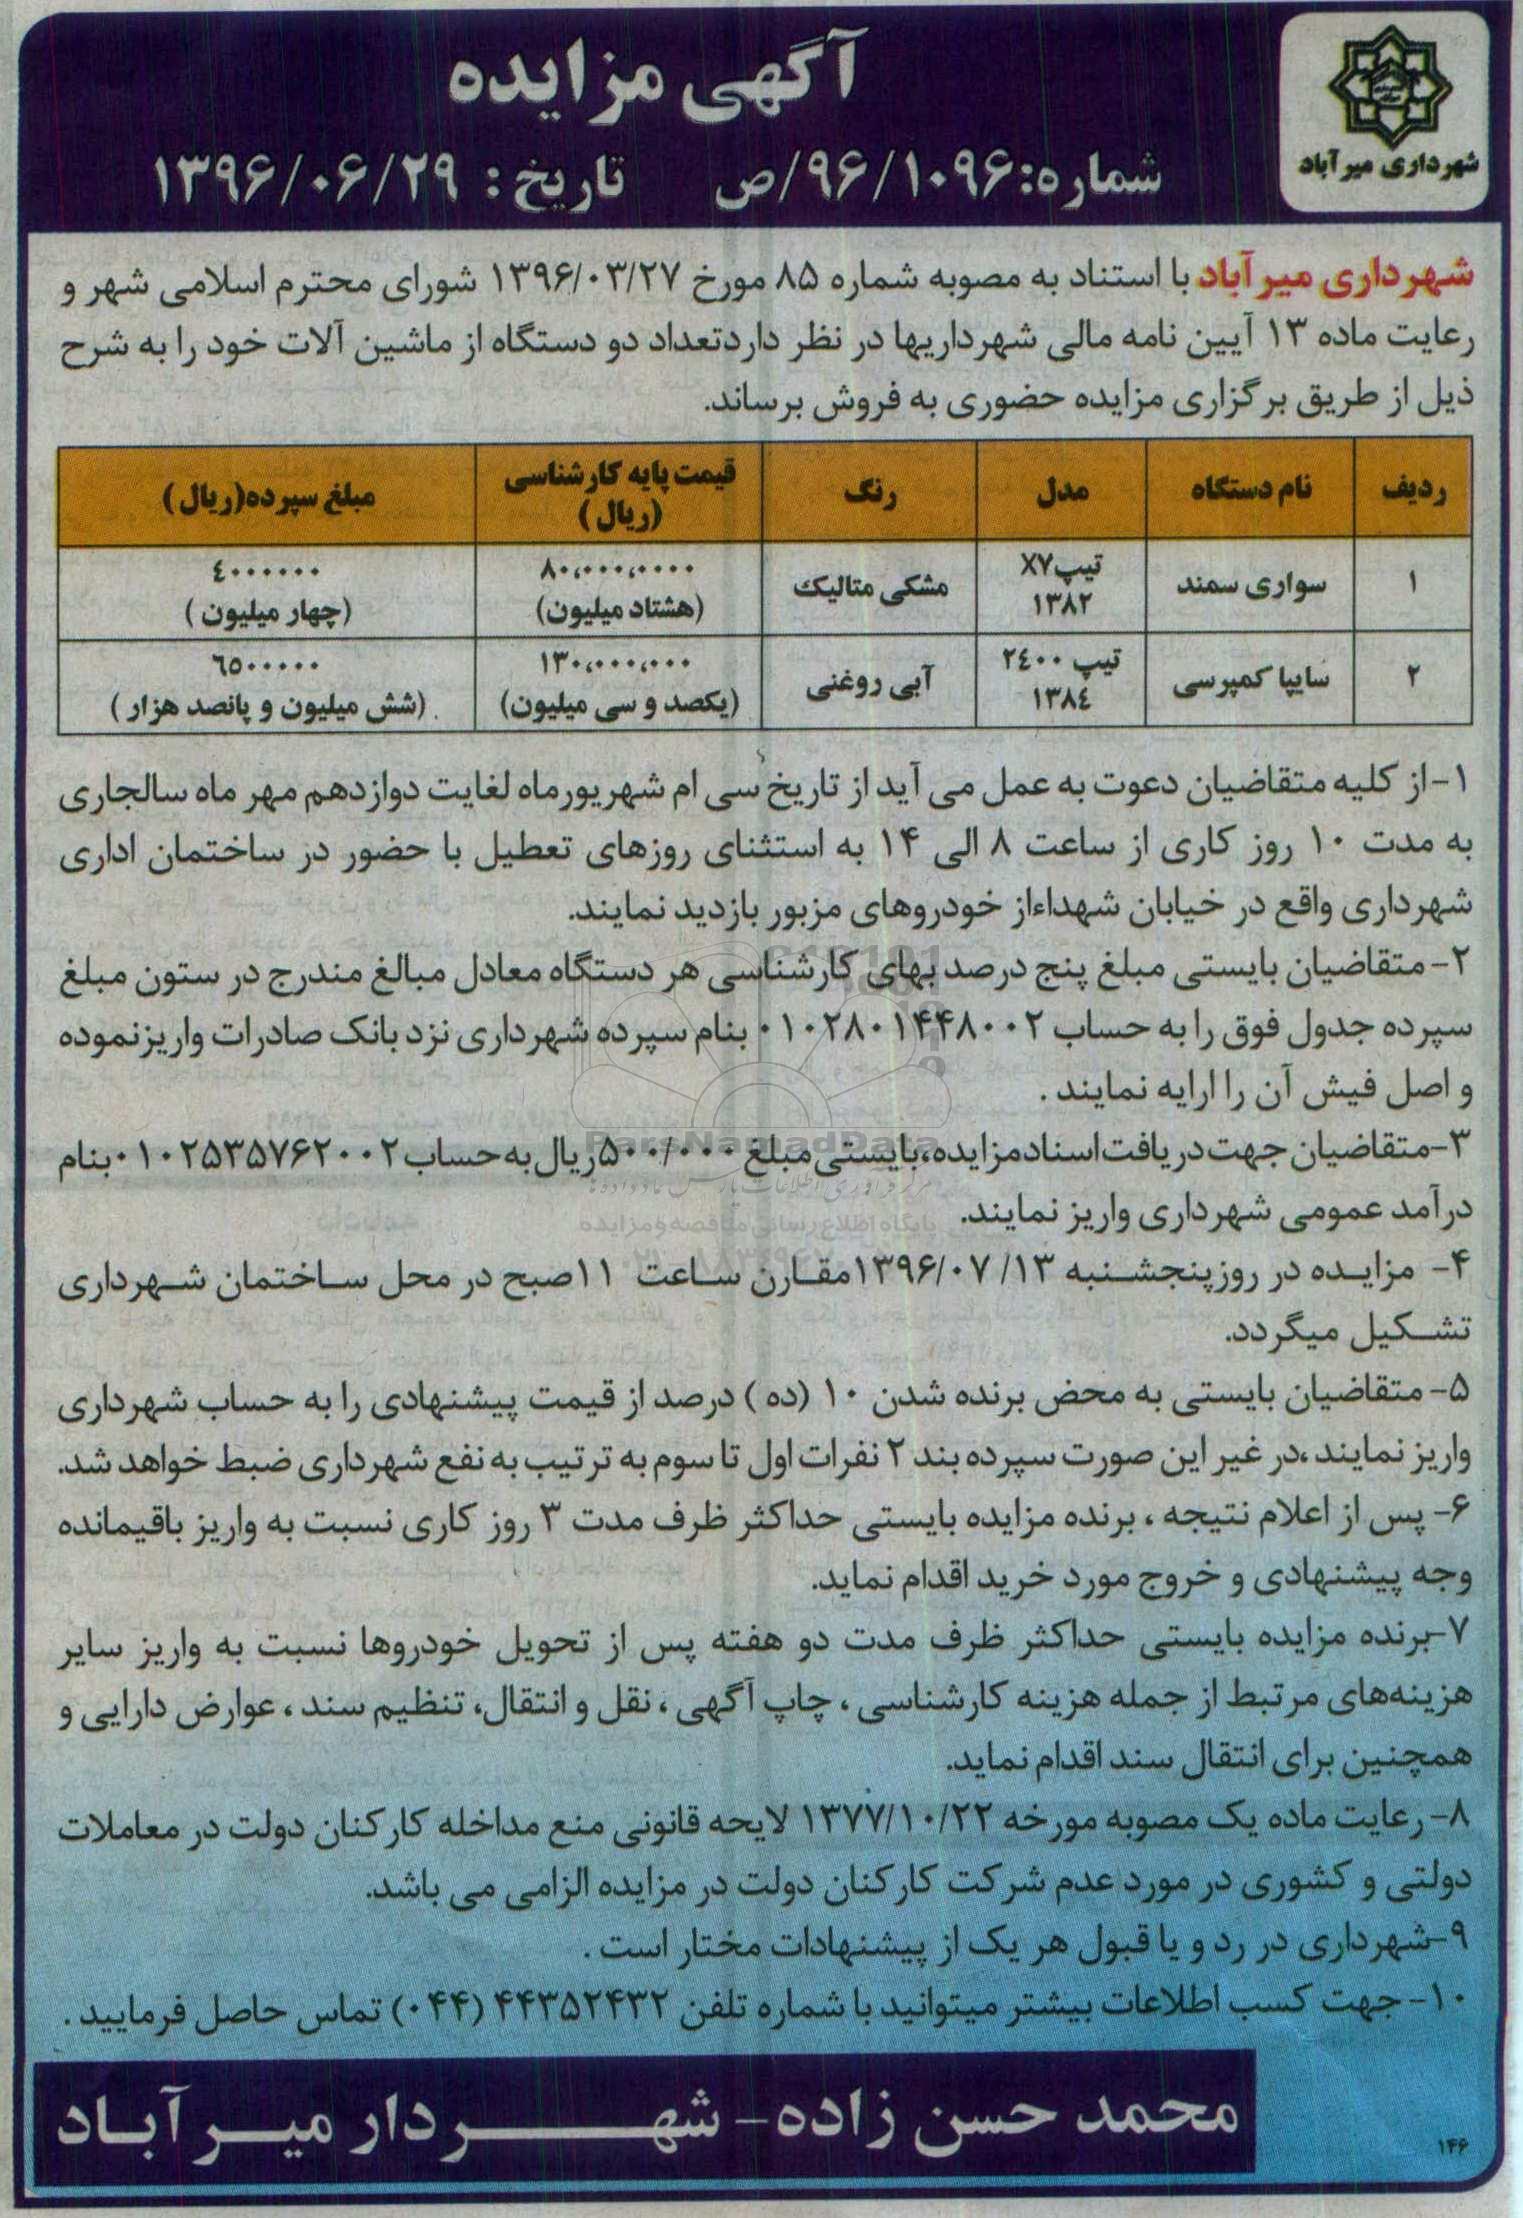 شهرداری میرآباد
آگهی مزایده
شماره:۹۶/۱۰۹۶/ص تاریخ: ۱۳۹۶/۰۶/۲۹
شهرداری میرآباد با استناد به مصوبه شماره ۸۵ مورخ ۱۳۹۶/۰۳/۲۷ شورای محترم اسلامی شهر و
رعایت ماده ۱۳ آیین نامه مالی شهرداریها در نظر داردتعداد دو دستگاه از ماشین آلات خود را به شرح
ذیل از طریق برگزاری مزایده حضوری به فروش برساند.
ردیف نام دستگاه مدل رنگ قیمت پایه کارشناسی (ریال) مبلغ سپرده(ریال)
۱ سواری سمند تیپX۷ ۱۳۸۲ مشکی متالیک ۸۰،۰۰۰،۰۰۰۰ (هشتاد میلیون) ٤۰۰۰۰۰۰ (چهار میلیون)
۲ سایپا کمپرسی تیپ ۲٤۰۰ ۱۳۸٤ آبی روغنی ۱۳۰،۰۰۰،۰۰۰ (یکصد و سی میلیون) ٦٥۰۰۰۰۰ (شش میلیون و پانصد هزار)
۱-از کلیه متقاضیان دعوت به عمل می آید از تاریخ سی ام شهریورماه لغایت دوازدهم مهر ماه سالجاری
به مدت ۱۰ روز کاری از ساعت ۸ الی ۱۴ به استثنای روزهای تعطیل با حضور در ساختمان اداری
شهرداری واقع در خیابان شهداءاز خودروهای مزبور بازدید نمایند.
۲- متقاضیان بایستی مبلغ پنج درصد بهای کارشناسی هر دستگاه معادل مبالغ مندرج در ستون مبلغ
سپرده جدول فوق را به حساب ۰۱۰۲۸۰۱۴۴۸۰۰۲ بنام سپرده شهرداری نزد بانک صادرات واریزنموده
و اصل فیش آن را ارایه نمایند .
۳-متقاضیان جهت دریافت اسناد مزایده،بایستی مبلغ ۵۰۰/۰۰۰ریال به حساب ۰۱۰۲۵۳۵۷۶۲۰۰۲بنام
درآمد عمومی شهرداری واریز نمایند.
۴- مزایده در روزپنجشنبه ۱۳۹۶/۰۷/۱۳مقارن ساعت ۱۱صبح در محل ساختمان شهرداری
تشکیل میگردد.
۵- متقاضیان بایستی به محض برنده شدن ۱۰ (ده) درصد از قیمت پیشنهادی را به حساب شهرداری
واریز نمایند ،در غیر این صورت سپرده بند ۲ نفرات اول تا سوم به ترتیب به نفع شهرداری ضبط خواهد شد.
۶- پس از اعلام نتیجه ، برنده مزایده بایستی حداکثر ظرف مدت ۳ روز کاری نسبت به واریز باقیمانده
وجه پیشنهادی و خروج مورد خرید اقدام نماید.
۷-برنده مزایده بایستی حداکثر ظرف مدت دو هفته پس از تحویل خودروها نسبت به واریز سایر
هزینه‌های مرتبط از جمله هزینه کارشناسی ، چاپ آگهی ، نقل و انتقال، تنظیم سند ، عوارض دارایی و
همچنین برای انتقال سند اقدام نماید.
۸- رعایت ماده یک مصوبه مورخه ۱۳۷۷/۱۰/۲۲ لایحه قانونی منع مداخله کارکنان دولت در معاملات
دولتی و کشوری در مورد عدم شرکت کارکنان دولت در مزایده الزامی می باشد.
۹-شهرداری در رد و یا قبول هر یک از پیشنهادات مختار است .
۱۰- جهت کسب اطلاعات بیشتر میتوانید با شماره تلفن ۴۴۳۵۲۴۳۲ (۰۴۴) تماس حاصل فرمایید .
محمد حسن زاده - شهردار میرآباد
۱۴۶
ParsNamadData
پایگاه اطلاع رسانی مناقصه ومزایده